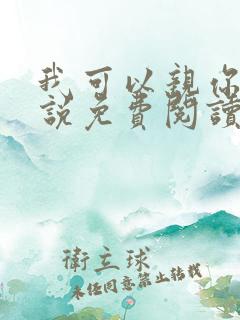 我可以親你
說免費閱讀
衛立球
未經同意禁止轉載